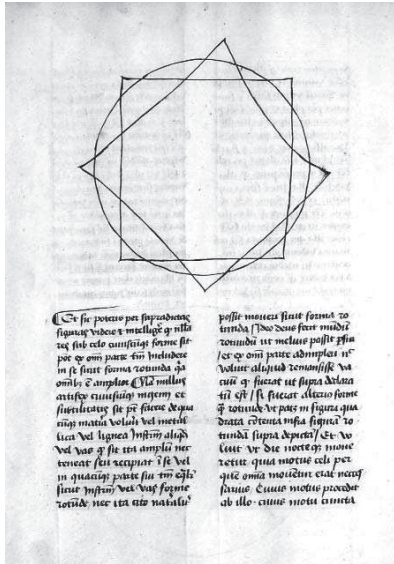 Et sic poteris per supradictas
figuras videre et intelligere q nulla
res sub celo cuiuscuqz forme sit
pot ex omi parte tm includere
in se sicut forma rotunda qa
omib3 e amplior nullus
artifex ingenij et
subtilitatis sit pt facere de qua
cuqz vel metal
lica vel lignea instrm aliqd
vel vas q sit ita ampliu nec
teneat seu recipiat i se vel
in quacuqz parte sui tm
sicut instrm vel vas forme
rotude nec ita cito
possit moveri sicut forma ro
tunda Ideo deus fecit mundu
rotundu ut melius possit
et ex omi parte adimpleri
voluit aliquid remansisse va
cuu q fuerat ut supra declara
tu est / si fuerat forme
q rotunde ut in figura qua
drata cotenta infra figura ro
tunda supra depicta / Et vo
luit ut die nocteqz move
retur quia motus celi per
que omia moventur erat neces
sarius Cuius motus procedit
ab illo cuius motu cuncta